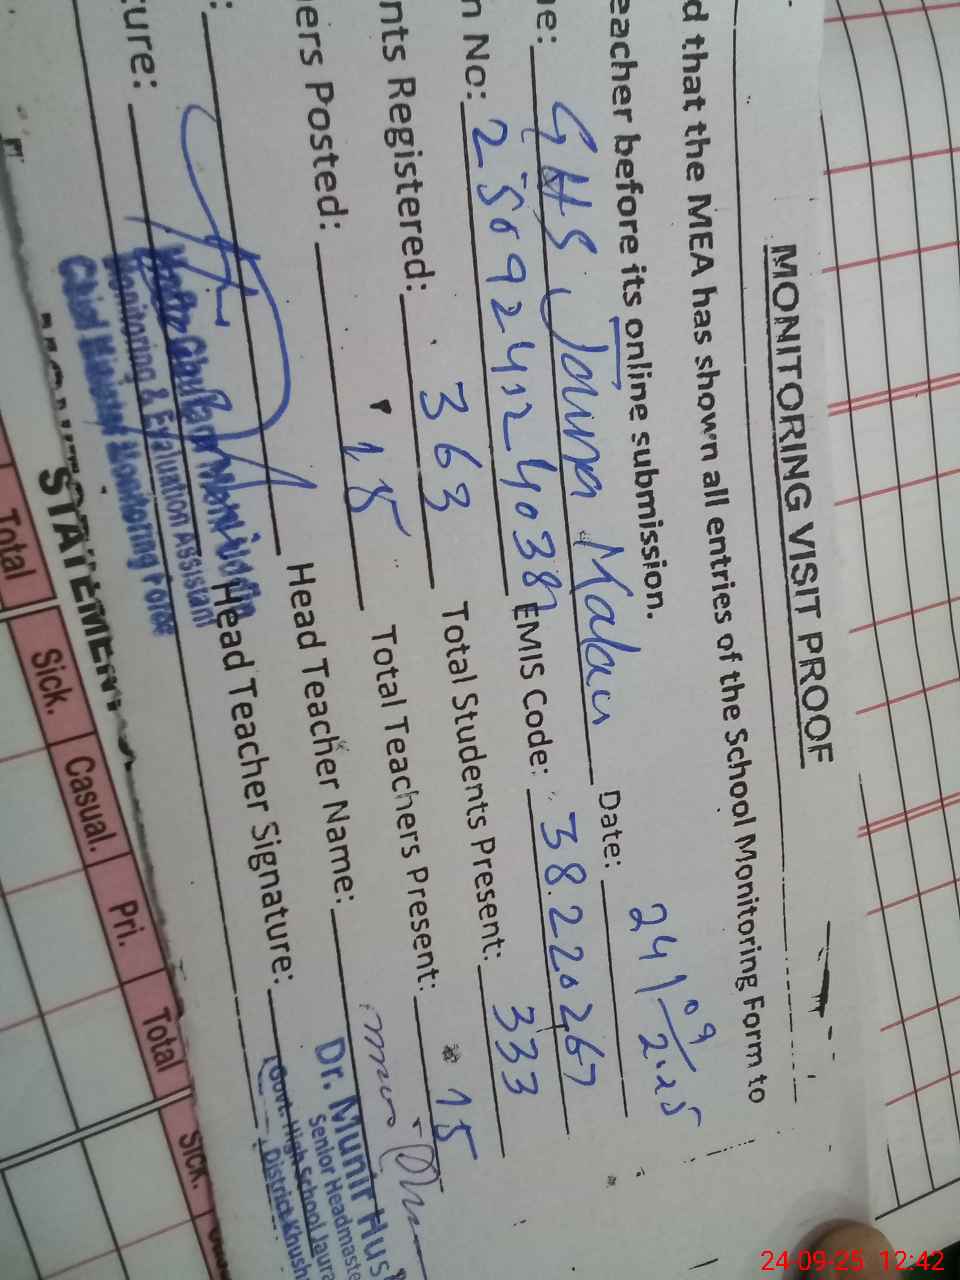 MONITORING VISIT PROOF
d that the MEA has shown all entries of the School Monitoring Form to
eacher before its online submission.
e: GHS Jaura Kalan Date: 24/09/2025
n No: EMIS Code: 38220267
nts Registered: 363 Total Students Present: 333
ers Posted: 15 Total Teachers Present: 15
: Head Teacher Name:
ture: Head Teacher Signature:
Monitoring & Evaluation Assistant
Chief Minister Monitoring Force
Dr. Munir Hus
Senior Headmaste
Govt. High School Jaura
District Khush
STATEMENT
Total Sick. Casual. Pri. Total Sick.
24-09-25 12:42